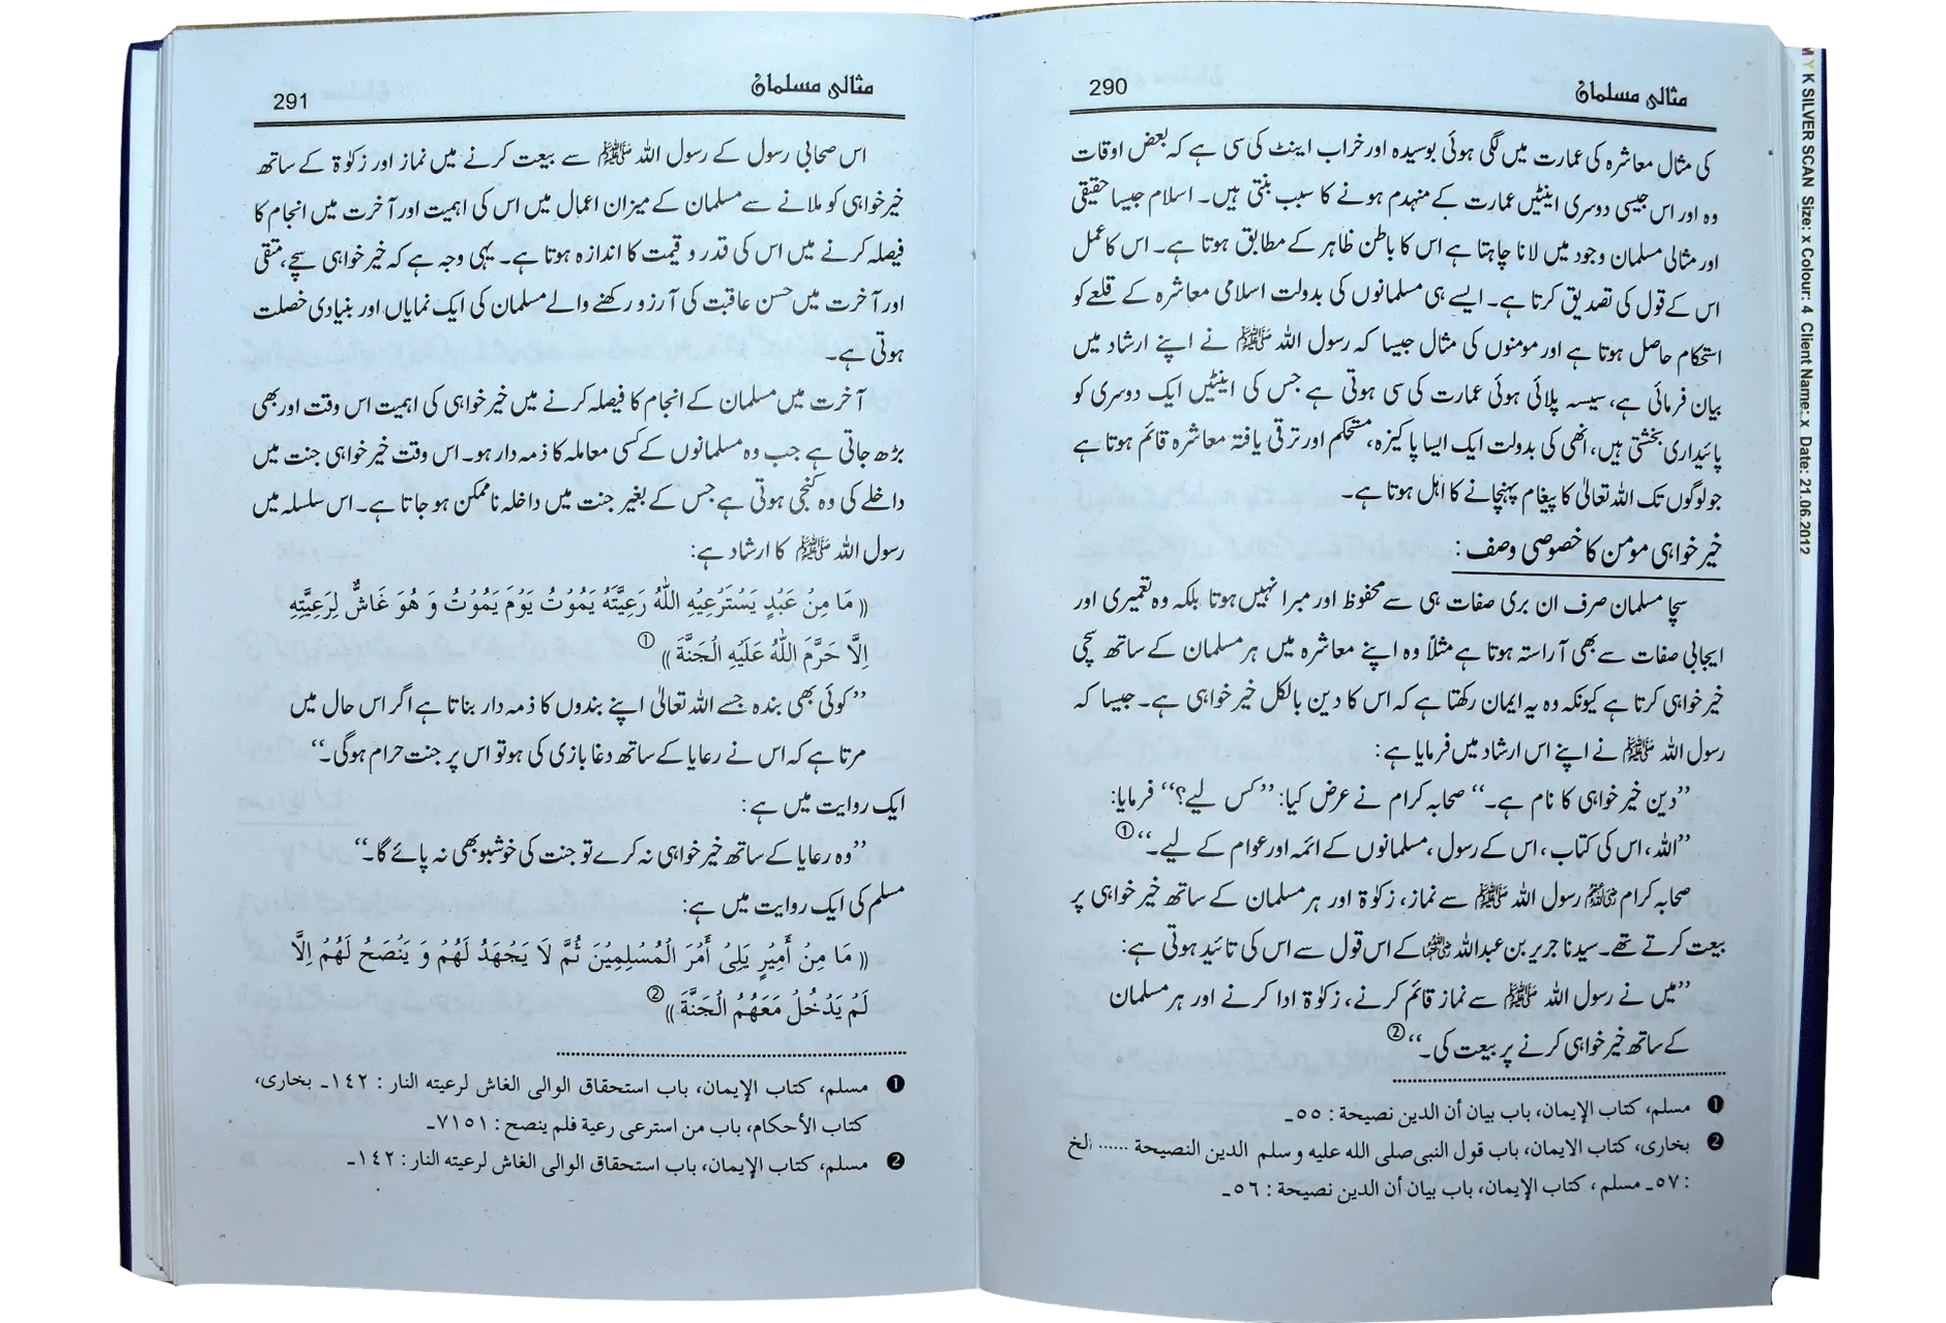 مثالی مسلمان
290
کی مثال معاشرہ کی عمارت میں لگی ہوئی بوسیدہ اور خراب اینٹ کی سی ہے کہ بعض اوقات
وہ اور اس جیسی دوسری اینٹیں عمارت کے منہدم ہونے کا سبب بنتی ہیں۔ اسلام جیسا حقیقی
اور مثالی مسلمان وجود میں لانا چاہتا ہے اس کا باطن ظاہر کے مطابق ہوتا ہے۔ اس کا عمل
اس کے قول کی تصدیق کرتا ہے۔ ایسے ہی مسلمانوں کی بدولت اسلامی معاشرہ کے قلعے کو
استحکام حاصل ہوتا ہے اور مومنوں کی مثال جیسا کہ رسول اللہ ﷺ نے اپنے ارشاد میں
بیان فرمائی ہے، سیسہ پلائی ہوئی عمارت کی سی ہوتی ہے جس کی اینٹیں ایک دوسری کو
پائیداری بخشتی ہیں، انھی کی بدولت ایک ایسا پاکیزہ، مستحکم اور ترقی یافتہ معاشرہ قائم ہوتا ہے
جو لوگوں تک اللہ تعالیٰ کا پیغام پہنچانے کا اہل ہوتا ہے۔
خیر خواہی مومن کا خصوصی وصف :
سچا مسلمان صرف ان بری صفات ہی سے محفوظ اور مبرا نہیں ہوتا بلکہ وہ تعمیری اور
ایجابی صفات سے بھی آراستہ ہوتا ہے مثلاً وہ اپنے معاشرہ میں ہر مسلمان کے ساتھ سچی
خیر خواہی کرتا ہے کیونکہ وہ یہ ایمان رکھتا ہے کہ اس کا دین بالکل خیر خواہی ہے۔ جیسا کہ
رسول اللہ ﷺ نے اپنے اس ارشاد میں فرمایا ہے:
’’دین خیر خواہی کا نام ہے۔‘‘ صحابہ کرام نے عرض کیا: ’’کس لیے؟‘‘ فرمایا:
’’اللہ، اس کی کتاب، اس کے رسول، مسلمانوں کے ائمہ اور عوام کے لیے۔‘‘①
صحابہ کرام رضی اللہ عنہم رسول اللہ ﷺ سے نماز، زکوٰۃ اور ہر مسلمان کے ساتھ خیر خواہی پر
بیعت کرتے تھے۔ سیدنا جریر بن عبداللہ رضی اللہ عنہ کے اس قول سے اس کی تائید ہوتی ہے:
’’میں نے رسول اللہ ﷺ سے نماز قائم کرنے، زکوٰۃ ادا کرنے اور ہر مسلمان
کے ساتھ خیر خواہی کرنے پر بیعت کی۔‘‘②
❶ مسلم، کتاب الإیمان، باب بیان أن الدین نصیحة : ٥٥۔
❷ بخاری، کتاب الایمان، باب قول النبی صلی الله علیه وسلم الدین النصیحة ...... الخ
: ٥٧۔ مسلم، کتاب الإیمان، باب بیان أن الدین نصیحة : ٥٦۔
مثالی مسلمان
291
اس صحابی رسول کے رسول اللہ ﷺ سے بیعت کرنے میں نماز اور زکوٰۃ کے ساتھ
خیر خواہی کو ملانے سے مسلمان کے میزان اعمال میں اس کی اہمیت اور آخرت میں انجام کا
فیصلہ کرنے میں اس کی قدر و قیمت کا اندازہ ہوتا ہے۔ یہی وجہ ہے کہ خیر خواہی سچے، متقی
اور آخرت میں حسن عاقبت کی آرزو رکھنے والے مسلمان کی ایک نمایاں اور بنیادی خصلت
ہوتی ہے۔
آخرت میں مسلمان کے انجام کا فیصلہ کرنے میں خیر خواہی کی اہمیت اس وقت اور بھی
بڑھ جاتی ہے جب وہ مسلمانوں کے کسی معاملہ کا ذمہ دار ہو۔ اس وقت خیر خواہی جنت میں
داخلے کی وہ کنجی ہوتی ہے جس کے بغیر جنت میں داخلہ ناممکن ہو جاتا ہے۔ اس سلسلہ میں
رسول اللہ ﷺ کا ارشاد ہے:
(( مَا مِنْ عَبْدٍ یَسْتَرْعِیْهِ اللّٰهُ رَعِیَّتَهُ یَمُوْتُ یَوْمَ یَمُوْتُ وَ هُوَ غَاشٌّ لِرَعِیَّتِهِ
اِلَّا حَرَّمَ اللّٰهُ عَلَیْهِ الْجَنَّةَ ))①
’’کوئی بھی بندہ جسے اللہ تعالیٰ اپنے بندوں کا ذمہ دار بناتا ہے اگر اس حال میں
مرتا ہے کہ اس نے رعایا کے ساتھ دغا بازی کی ہو تو اس پر جنت حرام ہوگی۔‘‘
ایک روایت میں ہے :
’’وہ رعایا کے ساتھ خیر خواہی نہ کرے تو جنت کی خوشبو بھی نہ پائے گا۔‘‘
مسلم کی ایک روایت میں ہے:
(( مَا مِنْ أَمِیْرٍ یَلِیْ أَمْرَ الْمُسْلِمِیْنَ ثُمَّ لَا یَجْهَدُ لَهُمْ وَ یَنْصَحُ لَهُمْ اِلَّا
لَمْ یَدْخُلْ مَعَهُمُ الْجَنَّةَ ))②
❶ مسلم، کتاب الإیمان، باب استحقاق الوالی الغاش لرعیته النار : ١٤٢۔ بخاری،
کتاب الأحکام، باب من استرعی رعیة فلم ینصح : ٧١٥١۔
❷ مسلم، کتاب الإیمان، باب استحقاق الوالی الغاش لرعیته النار : ١٤٢۔
M Y K SILVER SCAN Size: x Colour: 4 Client Name: x Date: 21.06.2012